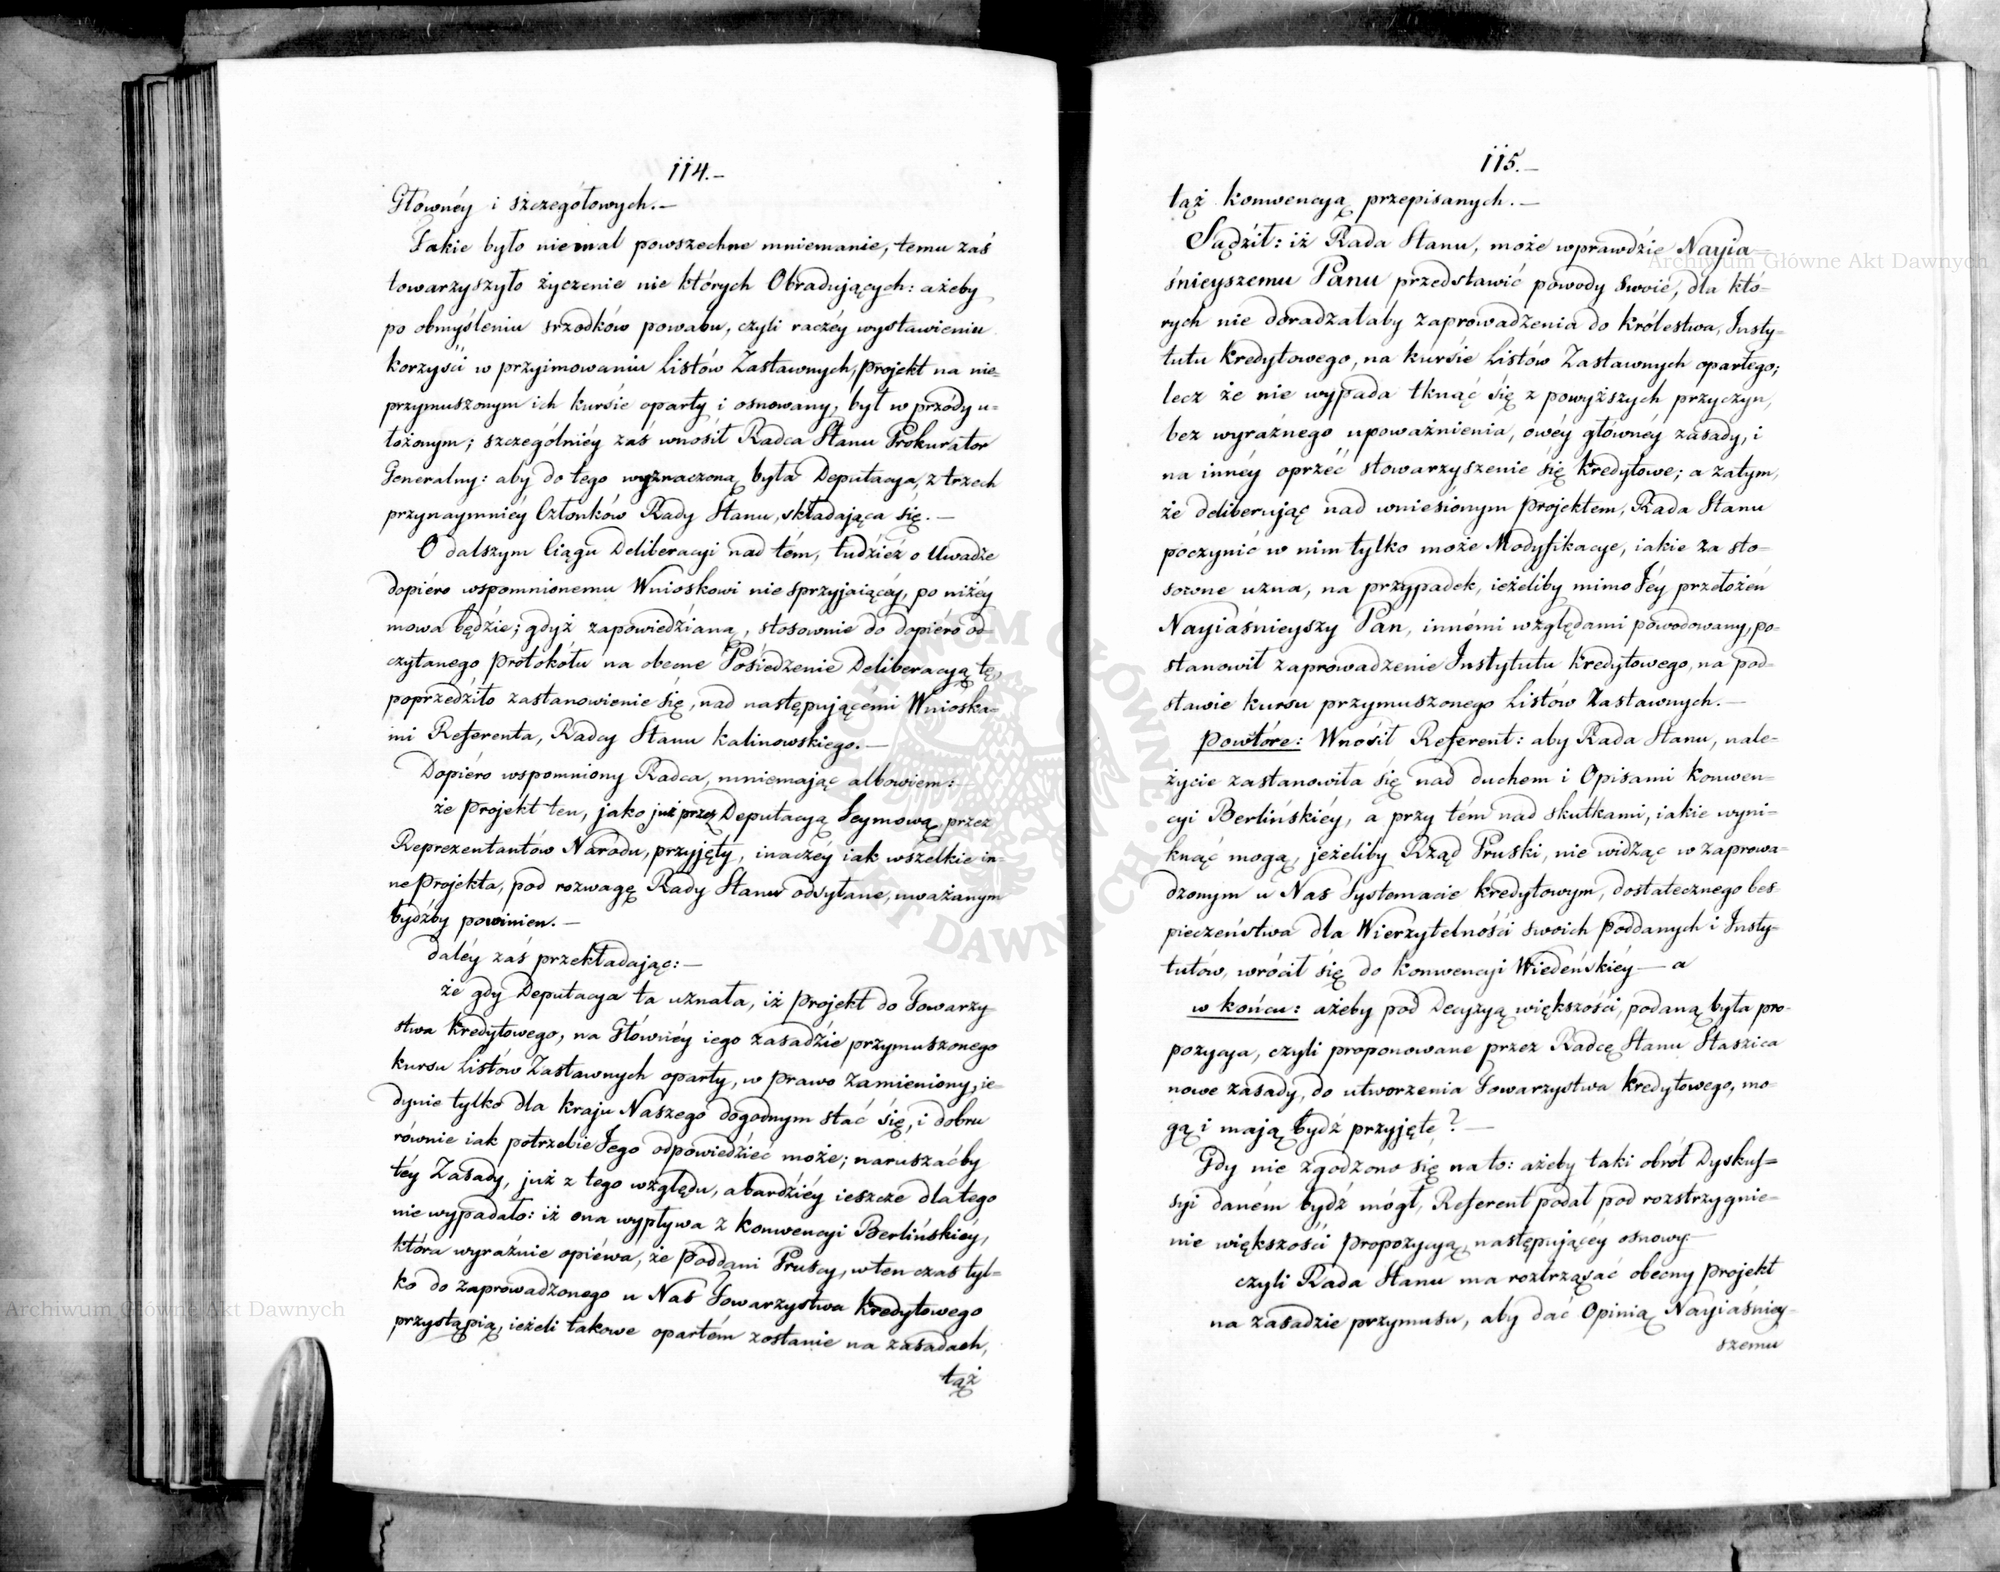 114.—
Główney i szczegółowych.—
Takie było niemal powszechne mniemanie, temu zaś
towarzyszyło życzenie nie których Obradujących: ażeby
po obmyśleniu srzodków powabu, czyli raczéy wystawieniu
korzyści w przyimowaniu Listów Zastawnych, Projekt na nie-
przymuszonym ich kursie oparty i osnowany, był w przódy u-
łożonym; szczególniéy zaś wnosił Radca Stanu Prokurator
Generalny: aby do tego wyznaczoną była Deputacya, z trzech
przynaymniéy Członków Rady Stanu, składająca się.—
O dalszym Ciągu Deliberacyi nad tém, tudzież o Uwadze
dopiéro wspomnionemu Wnioskowi nie sprzyjaiącéy, po niżéy
mowa będzie; gdyż zapowiedzianą, stosownie do dopiéro od-
czytanego protokółu na obecne Posiedzenie Deliberacyą tę,
poprzedziło zastanowienie się, nad następującémi Wnioska-
mi Referenta, Radcy Stanu Kalinowskiego.—
Dopiéro wspomniony Radca, mniemając albowiem:
że Projekt ten, jako już przez Deputacyą Seymową, przez
Reprezentantów Narodu, przyjęty, inaczéy iak wszelkie in-
ne Projekta, pod rozwagę Rady Stanu odsyłane, uważanym
bydźby powinien.—
daléy zaś przekładając:—
że gdy Deputacya ta uznała, iż Projekt do Towarzy-
stwa Kredytowego, na Głównéy iego zasadzie przymuszonego
kursu Listów Zastawnych oparty, w prawo zamieniony, ie-
dynie tylko dla kraju Naszego dogodnym stać się, i dobru
równie iak potrzebie Jego odpowiedzieć może; naruszaćby
téy Zasady, już z tego względu, a bardziéy ieszcze dla tego
nie wypadało: iż ona wypływa z Konwencyi Berlińskiéy,
która wyraźnie opiéwa, że Poddani Pruscy, wten czas tyl-
ko do zaprowadzonego u Nas Towarzystwa Kredytowego
przystąpią, ieżeli takowe opartém zostanie na zasadach,
tąż
115.—
tąż konwencyą przepisanych.—
Sądził: iż Rada Stanu, może wprawdzie Nayia-
śnieyszemu Panu przedstawić powody swoie, dla któ-
rych nie doradzałaby zaprowadzenia do Królestwa, Insty-
tutu Kredytowego, na kursie Listów Zastawnych opartego;
lecz że nie wypada tknąć się z powyższych przyczyn,
bez wyraźnego upoważnienia, owéy głównéy zasady, i
na innéy oprzéć stowarzyszenie się Kredytowe; a zatym,
że deliberując nad wniesionym Projektem, Rada Stanu
poczynić w nim tylko może Modyfikacye, iakie za sto-
sowne uzna, na przypadek, ieżeliby mimo Jéy przełożeń
Nayiaśnieyszy Pan, innémi względami powodowany, po-
stanowił zaprowadzenie Instytutu Kredytowego, na pod-
stawie kursu przymuszonego Listów Zastawnych.—
Powtóre: Wnosił Referent: aby Rada Stanu, nale-
życie zastanowiła się nad duchem i Opisami Konwen-
cyi Berlińskiéy, a przy tém nad skutkami, iakie wyni-
knąć mogą, jeżeliby Rząd Pruski, nie widząc w zaprowa-
dzonym u Nas Systemacie Kredytowym, dostatecznego bes-
pieczeństwa dla Wierzytelności swoich Poddanych i Insty-
tutów, wrócił się do Konwencyi Wiedeńskiéy — a
w końcu: ażeby pod Decyzyą większości, podaną była pro-
pozycya, czyli proponowane przez Radcę Stanu Staszica
nowe zasady, do utworzenia Towarzystwa Kredytowego, mo-
gą i mają bydź przyjęte?—
Gdy nie zgodzono się na to: ażeby taki obrót Dyskus-
syi daném bydź mógł, Referent podał pod rozstrzygnie-
nie większości Propozycyą następującéy osnowy:—
czyli Rada Stanu ma roztrząsać obecny Projekt
na zasadzie przymusu, aby dać Opinią Nayiaśniey-
szemu
Archiwum Główne Akt Dawnych
Archiwum Główne Akt Dawnych
ARCHIWUM GŁÓWNE AKT DAWNYCH